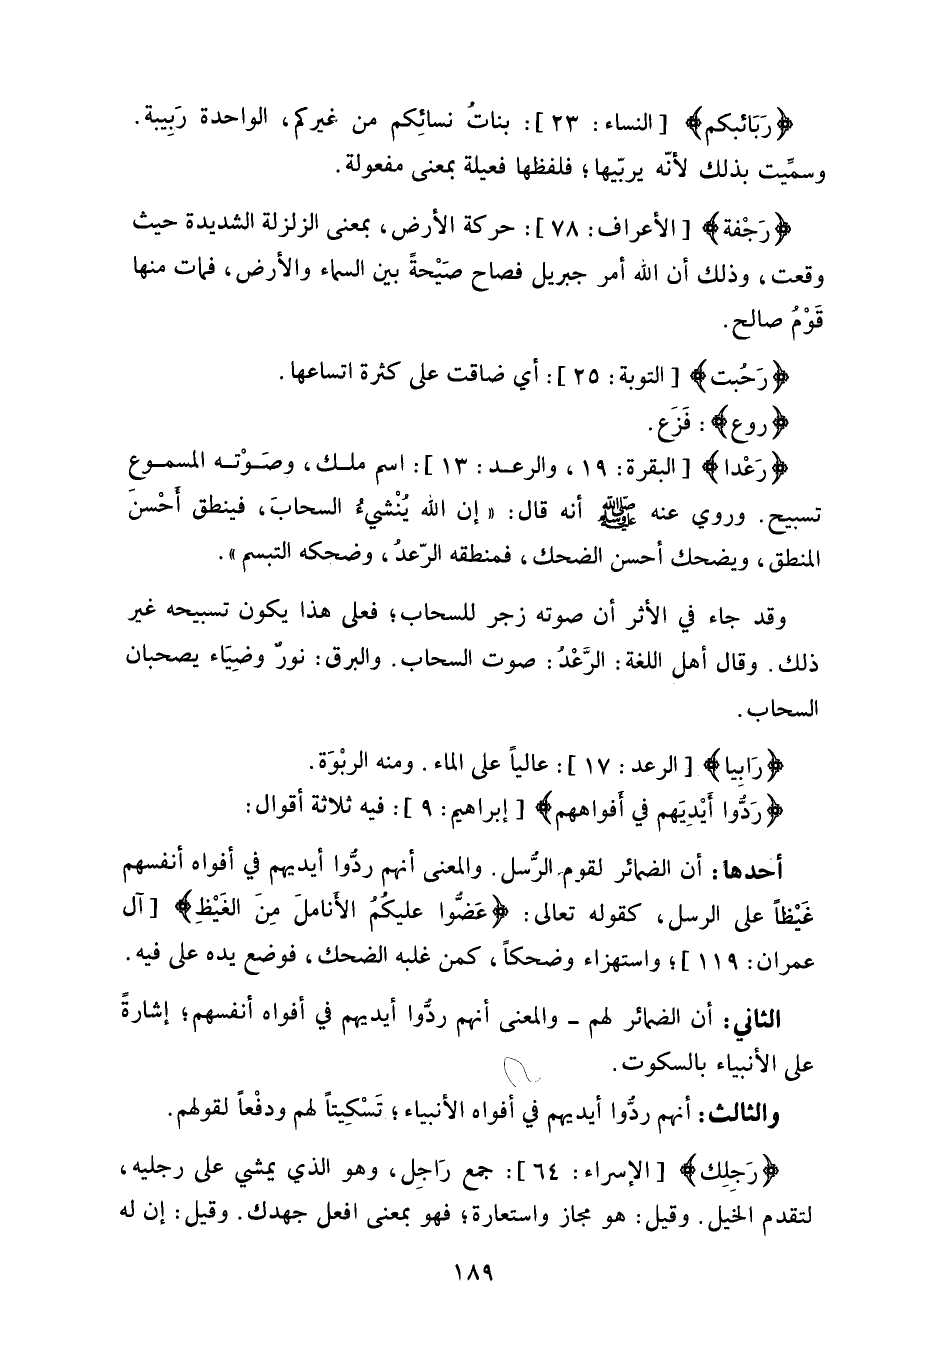 ﴿رَبَائبكم﴾ [النساء: ٢٣]: بناتُ نسائِكم من غيركم، الواحدة رَبِيبة.
وسمِّيت بذلك لأنّه يربّيها؛ فلفظها فعيلة بمعنى مفعولة.
﴿رَجْفة﴾ [الأعراف: ٧٨]: حركة الأرض، بمعنى الزلزلة الشديدة حيث
وقعت، وذلك أن الله أمر جبريل فصاح صَيْحةً بين السماء والأرض، فمات منها
قَوْمُ صالح.
﴿رَحُبت﴾ [التوبة: ٢٥]: أي ضاقت على كثرة اتساعها.
﴿روع﴾: فَزَع.
﴿رَعْدا﴾ [البقرة: ١٩، والرعد: ١٣]: اسم ملك، وصَوْته المسموع
تسبيح. وروي عنه ﷺ أنه قال: «إن الله يُنْشيءُ السحابَ، فينطق أَحْسنَ
المنطق، ويضحك أحسن الضحك، فمنطقه الرّعدُ، وضحكه التبسم».
وقد جاء في الأثر أن صوته زجر للسحاب؛ فعلى هذا يكون تسبيحه غير
ذلك. وقال أهل اللغة: الرَّعْدُ: صوت السحاب. والبرق: نورٌ وضِيَاء يصحبان
السحاب.
﴿رَابِيا﴾ [الرعد: ١٧]: عالياً على الماء. ومنه الربْوَة.
﴿رَدُّوا أَيْدِيَهم في أَفواههم﴾ [إبراهيم: ٩]: فيه ثلاثة أقوال:
أحدها: أن الضمائر لقوم الرُّسل. والمعنى أنهم ردُّوا أيديهم في أفواه أنفسهم
غَيْظاً على الرسل، كقوله تعالى: ﴿عَضُّوا عليكُمُ الأَناملَ مِنَ الغَيْظِ﴾ [آل
عمران: ١١٩]؛ واستهزاء وضحكاً، كمن غلبه الضحك، فوضع يده على فيه.
الثاني: أن الضمائر لهم - والمعنى أنهم ردُّوا أيديهم في أفواه أنفسهم؛ إشارةً
على الأنبياء بالسكوت.
والثالث: أنهم ردُّوا أيديهم في أفواه الأنبياء؛ تَسْكِيتاً لهم ودفْعاً لقولهم.
﴿رَجِلِك﴾ [الإسراء: ٦٤]: جمع رَاجِل، وهو الذي يمشي على رجليه،
لتقدم الخيل. وقيل: هو مجاز واستعارة؛ فهو بمعنى افعل جهدك. وقيل: إن له
١٨٩